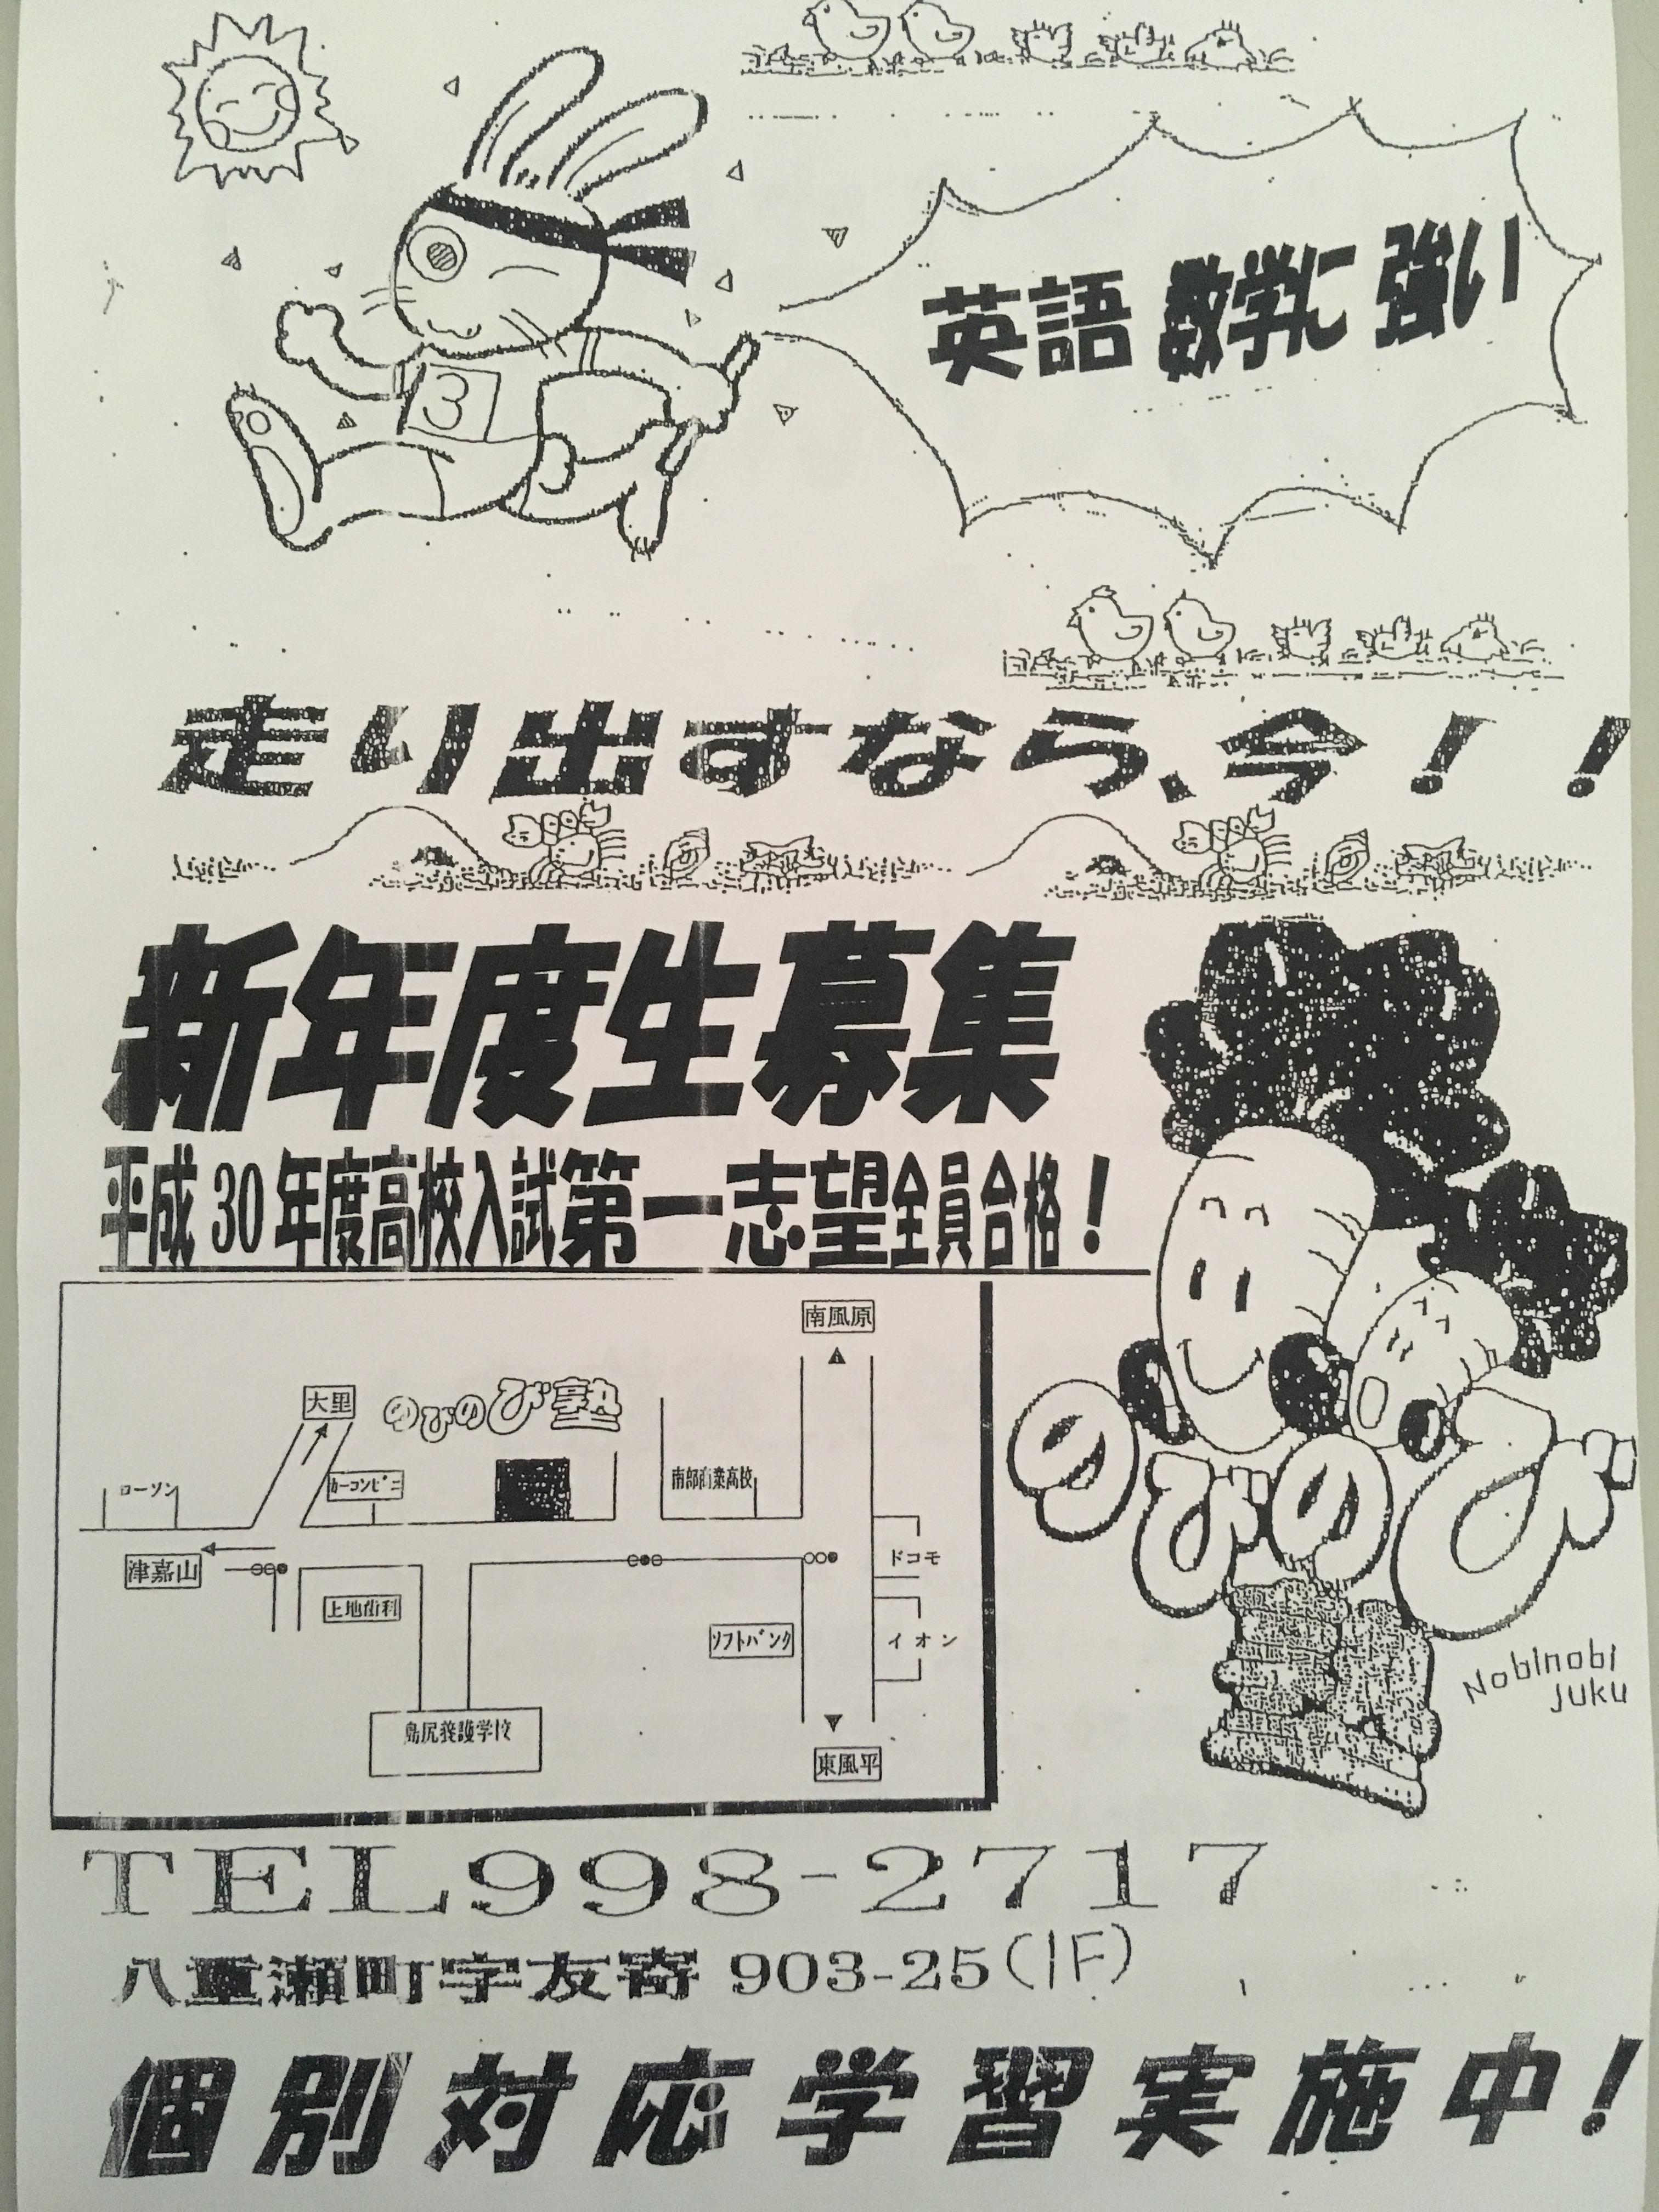 英語 数学に 強い
走り出すなら、今！！
新年度生募集
平成30年度高校入試第一志望全員合格！
南風原
大里
のびのび塾
ローソン
カーコンビニ
南部商業高校
津嘉山
ドコモ
上地歯科
ソフトバンク
イオン
島尻養護学校
東風平
3
のびのび
Nobinobi
juku
TEL998-2717
八重瀬町字友寄 903-25(1F)
個別対応学習実施中！